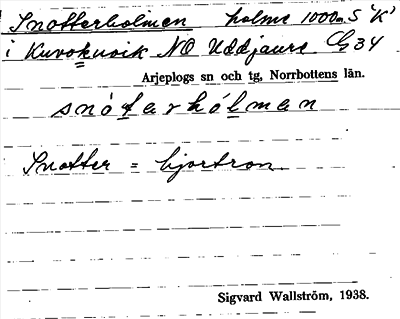 Snotterholmen holme 1000m S "K"
i Kuvokuoik NO Uddjaure Cg 34
Arjeplogs sn och tg, Norrbottens län.
snótarhólman
Snotter = hjortron.
Sigvard Wallström, 1938.